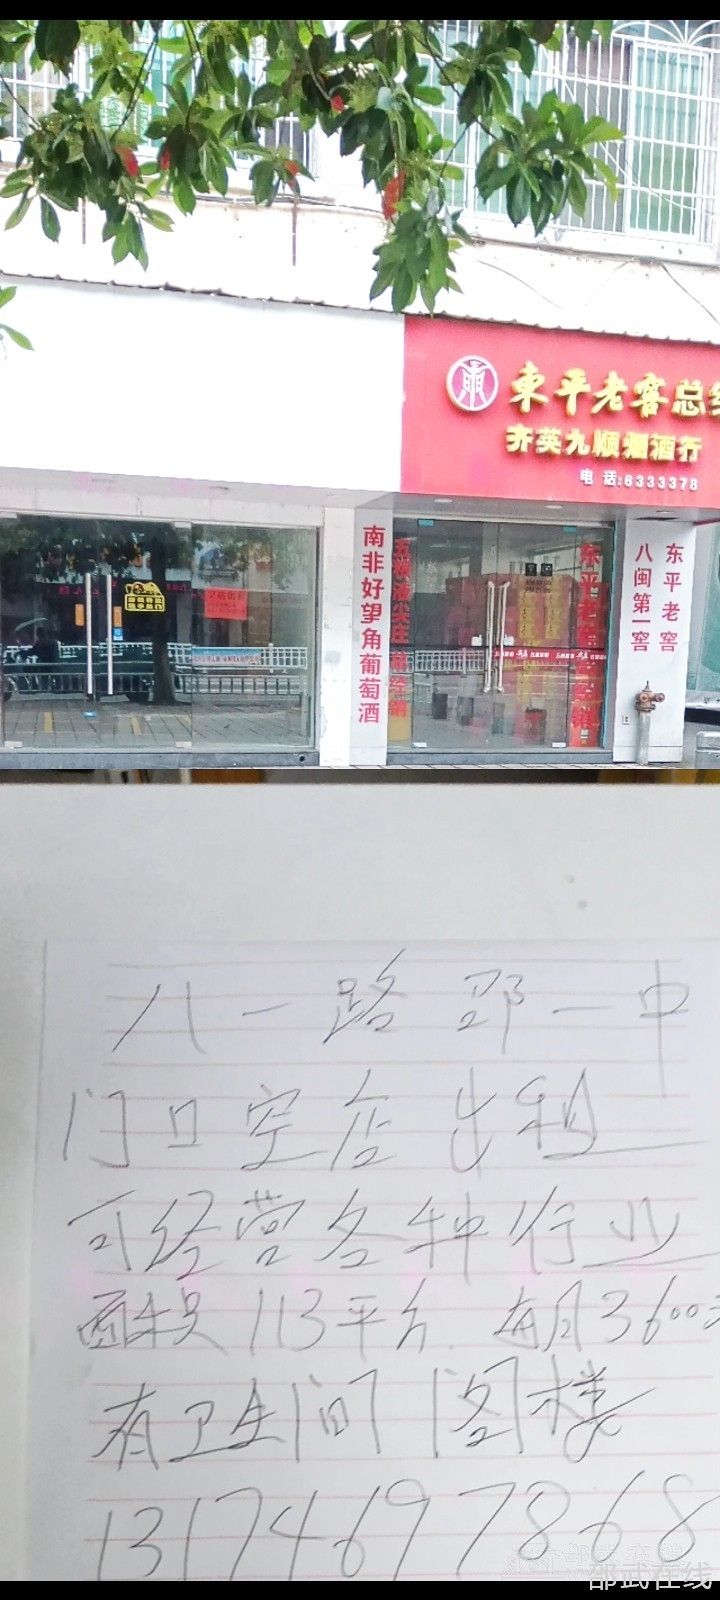 東平老窖总经
齐英九顺酒行
电 话:6333378
南非好望角葡萄酒
五粮液尖庄总经销
东平老窖总经销
八闽第一窖
东平老窖
八一路邵一中
门口空店出租
可经营各种行业
面积113平方.每月3600元
有卫生间阁楼
13174697868
邵武在线